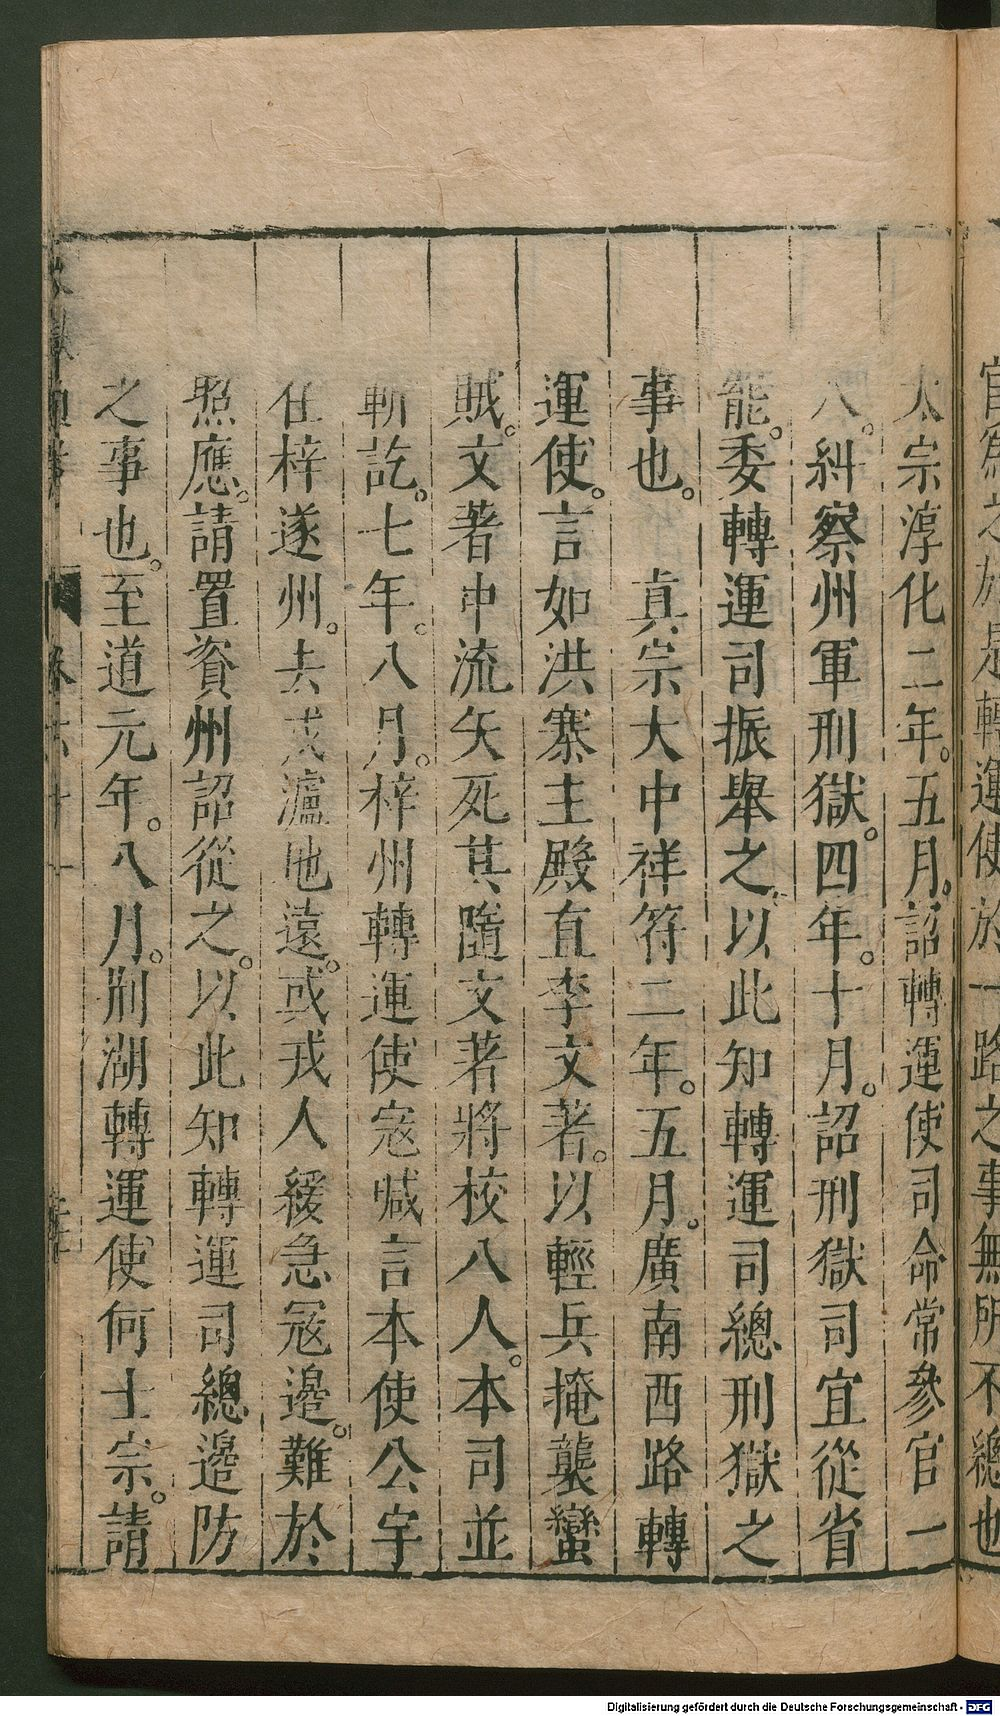 官爲之於是轉運使於一路之事無所不總也
太宗淳化二年。五月。詔轉運使司命常參官一
人。糾察州軍刑獄。四年。十月。詔刑獄司宜從省
罷。委轉運司振舉之。以此知轉運司總刑獄之
事也。真宗大中祥符二年。五月。廣南西路轉
運使。言如洪寨主殿直李文著。以輕兵掩襲蠻
賊。文著中流矢死其隨文著將校八人。本司並
斬訖。七年。八月。梓州轉運使寇瑊言本使公宇
在梓遂州。去戎瀘地遠。或戎人緩急寇邊。難於
照應。請置資州詔從之。以此知轉運司總邊防
之事也。至道元年。八月。荆湖轉運使何士宗。請
卷六十一
Digitalisierung gefördert durch die Deutsche Forschungsgemeinschaft - DFG